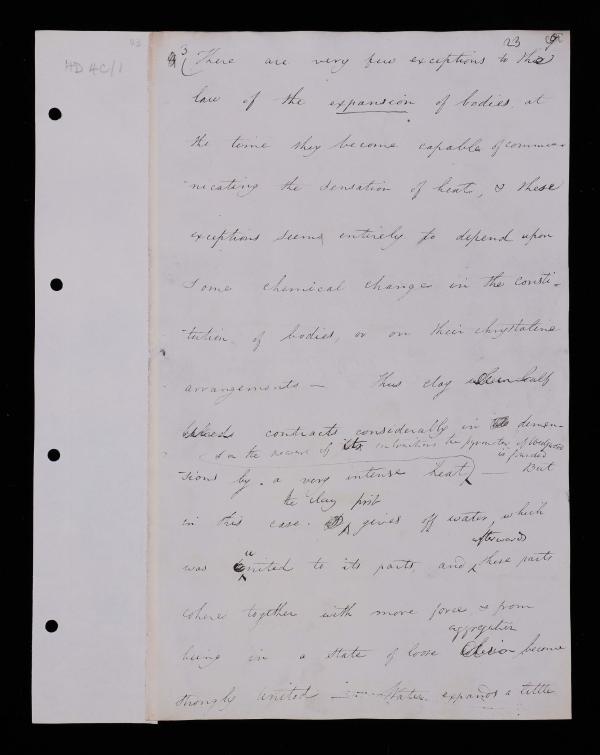 HD 4C/1
3 There are very few exceptions to the 23
law of the expansion of bodies at
the time they become capable of commu-
-nicating the sensation of heat, & these
exceptions seem entirely to depend upon
some chemical change in the consti-
-tution of bodies, or on their chrystaline
arrangements — Thus clay
contracts considerably in demen-
& on the measure of its contraction the pyrometer of Wedgwood is founded
-sions by a very intense heat — But
the clay first
in this case gives off water, which
afterwards
was united to its parts and these parts
cohere together with more force, & from
aggregation
being in a state of loose become
strongly united — Water expands a little